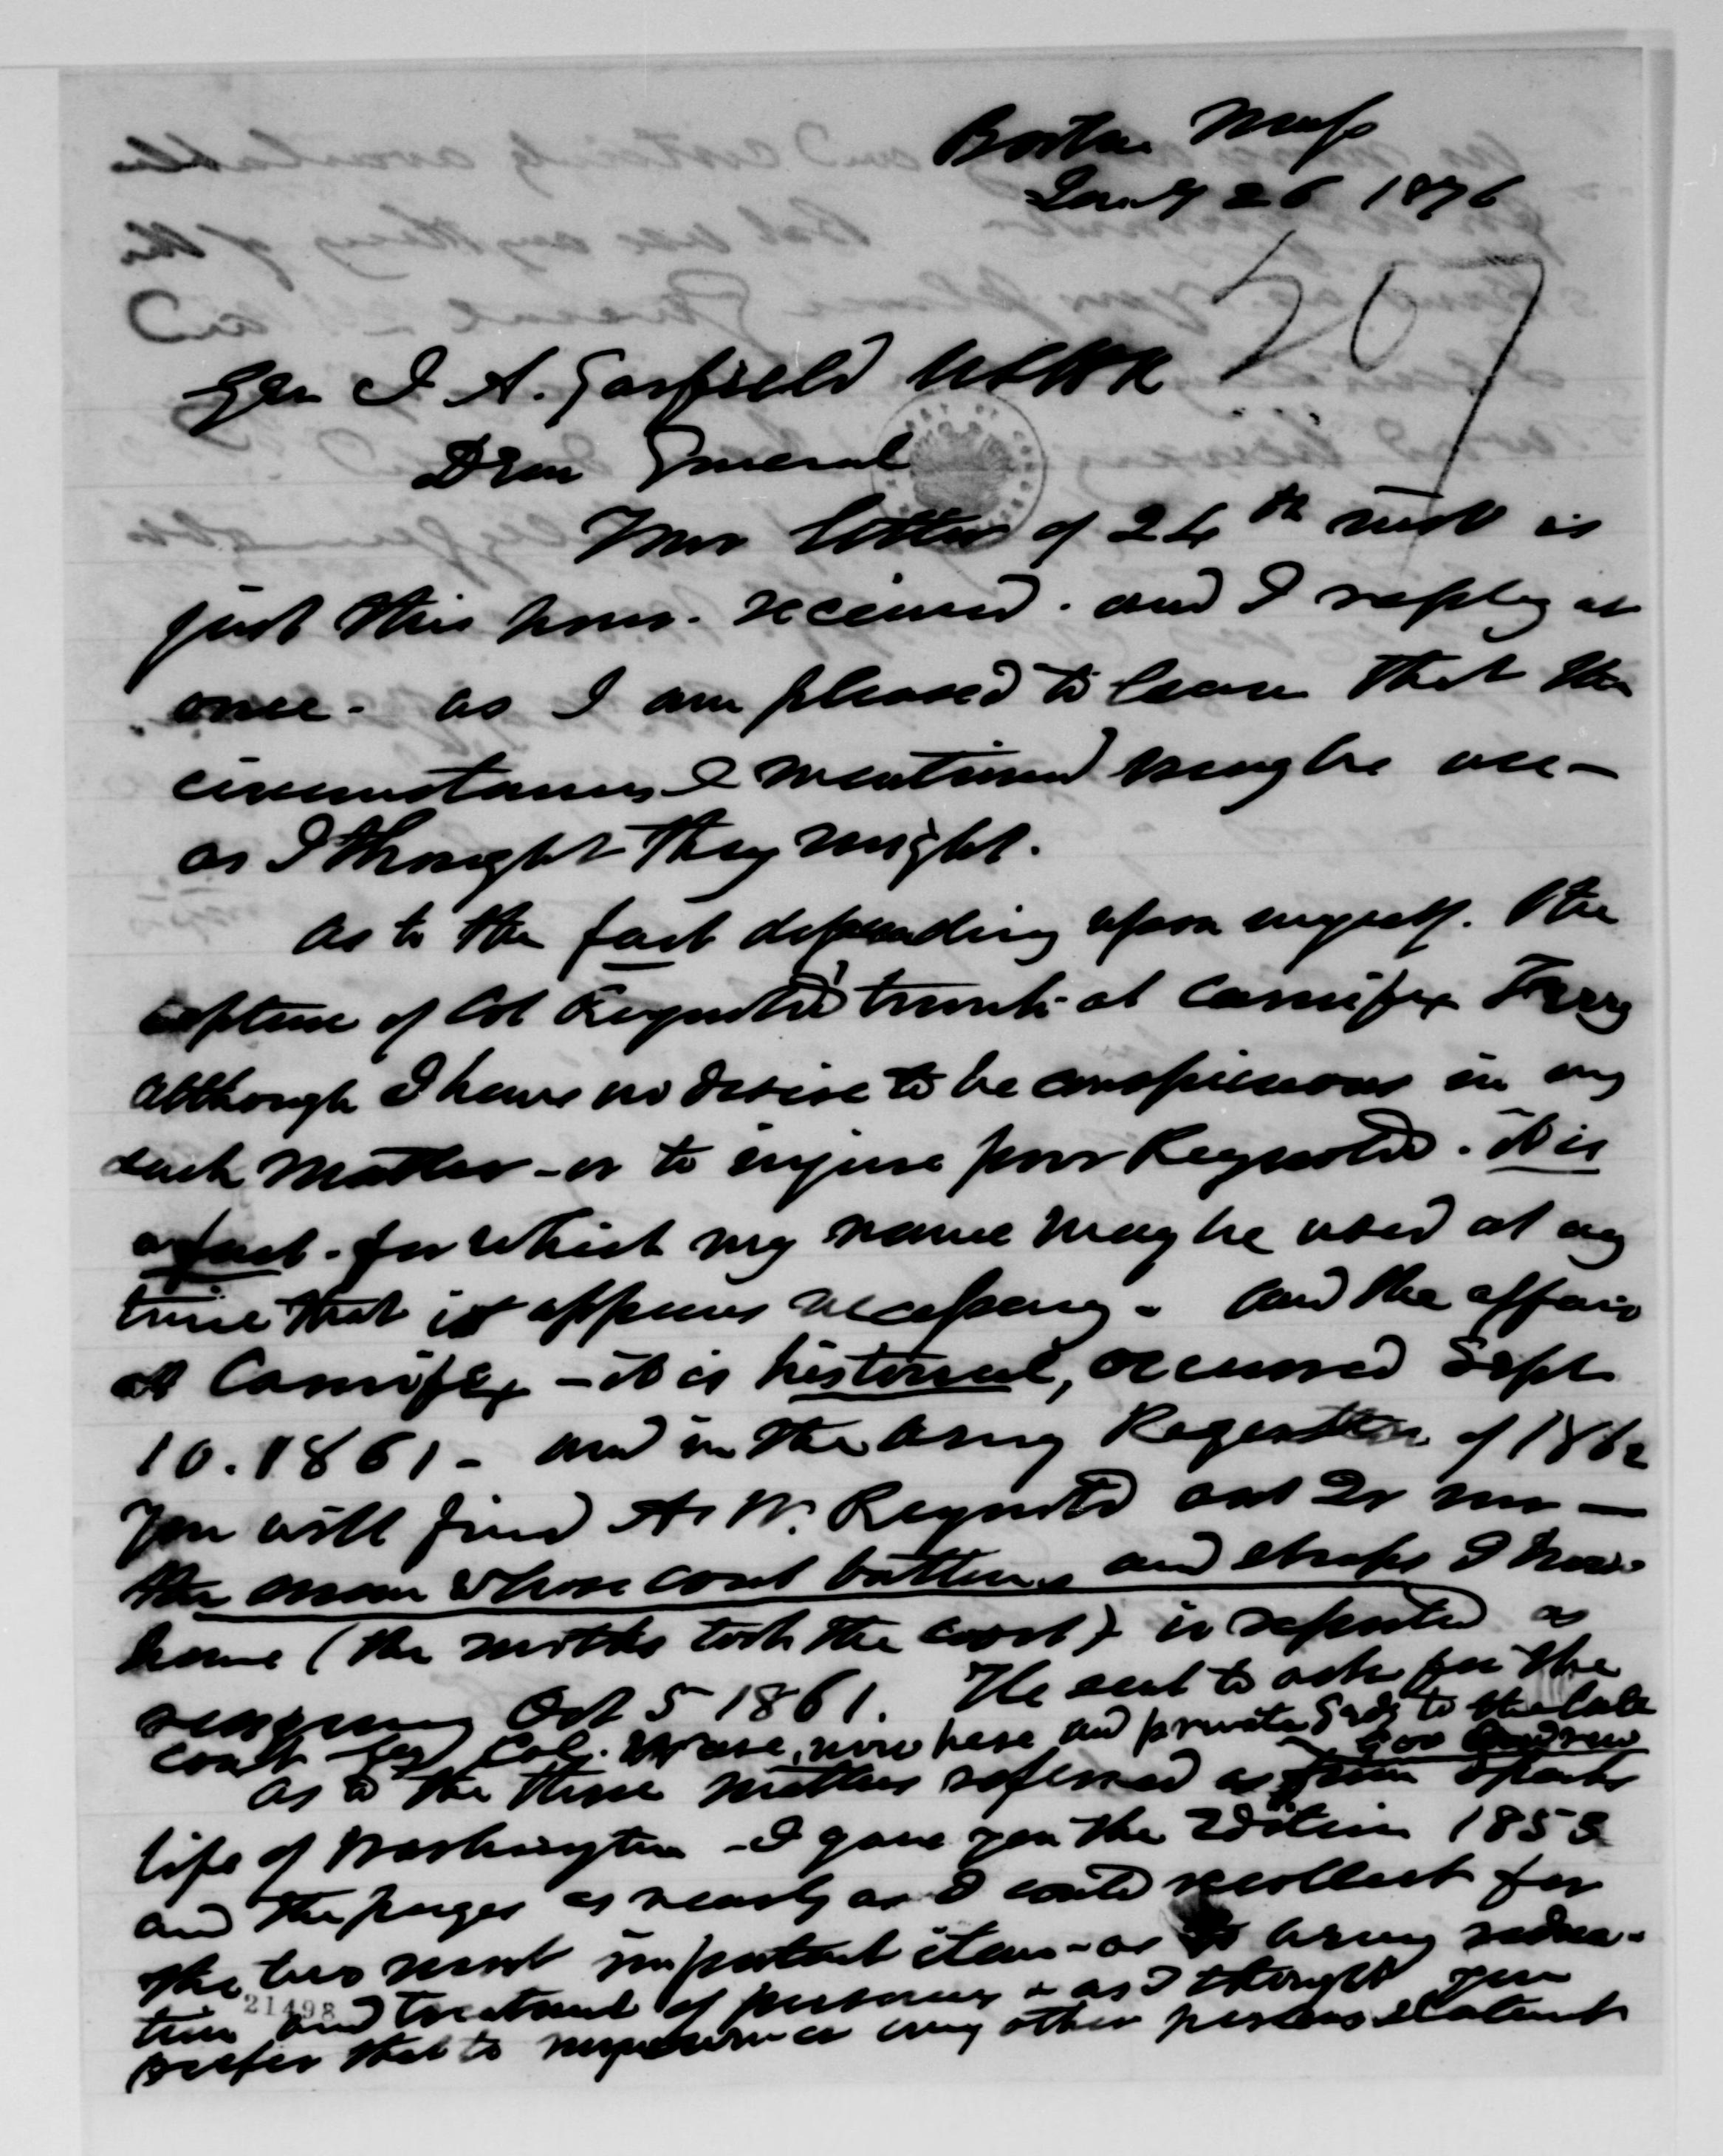 Boston Mass
Jany 26 1876
207
Gen J. A. Garfield USHR
Dear General
Your letter of 24th inst is
just this hour. received. and I reply at
once. as I am pleased to learn that the
circumstances I mentioned may be use-
as I thought they might.
As to the fact depending upon myself. the
capture of Col Reynolds' trunk at Carnifex Ferry
although I have no desire to be conspicuous in any
such matter - or to injure poor Reynolds. it is
a fact. for which my name may be used at any
time that it appears necessary. and the affair
at Carnifex - it is historical, occurred Sept
10. 1861 - and in the Army Register of 1862
you will find A. W. Reynolds
the man whose coat buttons and straps I now
have (the moths took the coat) is reported as
resigning Oct 5 1861. He sent to ask for the
coat by Col. now here and private Secy to the late
Gov Andrew
As to the three matters referred as from Sparks
life of Washington - I gave you the Edition 1853
and the pages as nearly as I could recollect for
the two most important items - as to army reduc-
tion and treatment of prisoners & as I thought you
21498
prefer that to any other persons statement